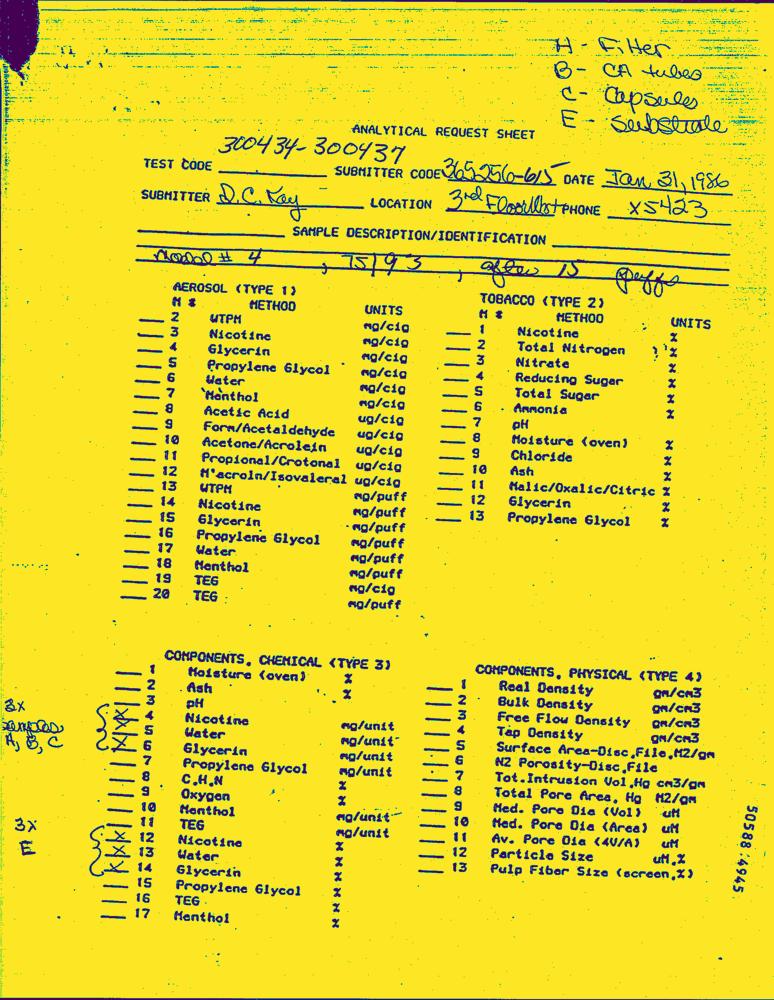 H - Filter
B - CA tubes
C - Capsules
E - Substrate
ANALYTICAL REQUEST SHEET
300434-300437
TEST CODE SUBMITTER CODE 365256-615 DATE Jan 31, 1986
SUBMITTER D.C. Kay LOCATION 3rd Floor PHONE x5423
SAMPLE DESCRIPTION/IDENTIFICATION
Model # 4, 75/93, after 15 puffs
AEROSOL (TYPE 1)
M # METHOD UNITS
2 WTPM mg/cig
3 Nicotine mg/cig
4 Glycerin mg/cig
5 Propylene Glycol mg/cig
6 Water mg/cig
7 Menthol mg/cig
8 Acetic Acid ug/cig
9 Form/Acetaldehyde ug/cig
10 Acetone/Acrolein ug/cig
11 Propional/Crotonal ug/cig
12 M'acroln/Isovaleral ug/cig
13 WTPM mg/puff
14 Nicotine mg/puff
15 Glycerin mg/puff
16 Propylene Glycol mg/puff
17 Water mg/puff
18 Menthol mg/puff
19 TEG mg/cig
20 TEG mg/puff
TOBACCO (TYPE 2)
M # METHOD UNITS
1 Nicotine %
2 Total Nitrogen %
3 Nitrate %
4 Reducing Sugar %
5 Total Sugar %
6 Ammonia %
7 pH
8 Moisture (oven) %
9 Chloride %
10 Ash %
11 Malic/Oxalic/Citric %
12 Glycerin %
13 Propylene Glycol %
COMPONENTS, CHEMICAL (TYPE 3)
1 Moisture (oven) %
2 Ash %
3 pH
X 4 Nicotine mg/unit
X 5 Water mg/unit
X 6 Glycerin mg/unit
7 Propylene Glycol mg/unit
8 C,H,N %
9 Oxygen %
10 Menthol mg/unit
11 TEG mg/unit
X 12 Nicotine %
X 13 Water %
X 14 Glycerin %
15 Propylene Glycol %
16 TEG %
17 Menthol %
3x
samples
A, B, C
3x
E
COMPONENTS, PHYSICAL (TYPE 4)
1 Real Density gm/cm3
2 Bulk Density gm/cm3
3 Free Flow Density gm/cm3
4 Tap Density gm/cm3
5 Surface Area-Disc,File,M2/gm
6 N2 Porosity-Disc,File
7 Tot.Intrusion Vol,Hg cm3/gm
8 Total Pore Area, Hg M2/gm
9 Med. Pore Dia (Vol) uM
10 Med. Pore Dia (Area) uM
11 Av. Pore Dia (4V/A) uM
12 Particle Size uM,%
13 Pulp Fiber Size (screen,%)
50588 4945